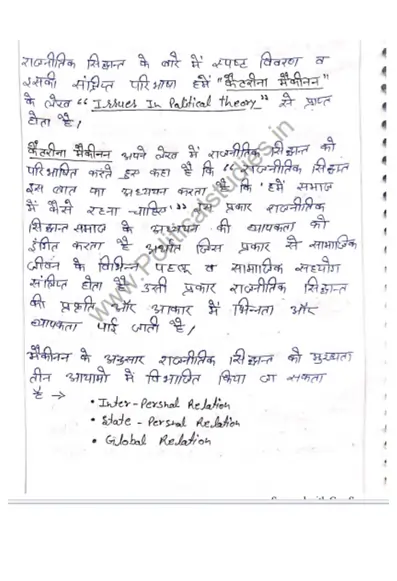 राजनीतिक सिद्धान्त के बारे में स्पष्ट विवरण व
इसकी संक्षिप्त परिभाषा हमें "कैटरीना मैकीनन"
के लेख "Issues In Political theory" से प्राप्त
होता है।
कैटरीना मैकीनन अपने लेख में राजनीतिक सिद्धान्त को
परिभाषित करते हुए कहा है कि "राजनीतिक सिद्धान्त
इस बात का अध्ययन करता है कि 'हमें समाज
में कैसे रहना चाहिए' इस प्रकार राजनीतिक
सिद्धान्त समाज के अध्ययन की व्यापकता को
इंगित करता है अर्थात जिस प्रकार से सामाजिक
जीवन के विभिन्न पहलू व सामाजिक सहयोग
संक्षिप्त होता है उसी प्रकार राजनीतिक सिद्धान्त
की प्रकृति और आकार में भिन्नता और
व्यापकता पाई जाती है।
मैकीनन के अनुसार राजनीतिक सिद्धान्त को मुख्यता
तीन आयामो में विभाजित किया जा सकता
है →
• Inter-Persnal Relation
• State - Persnal Relation
• Global Relation
www.Politicalstudies.in